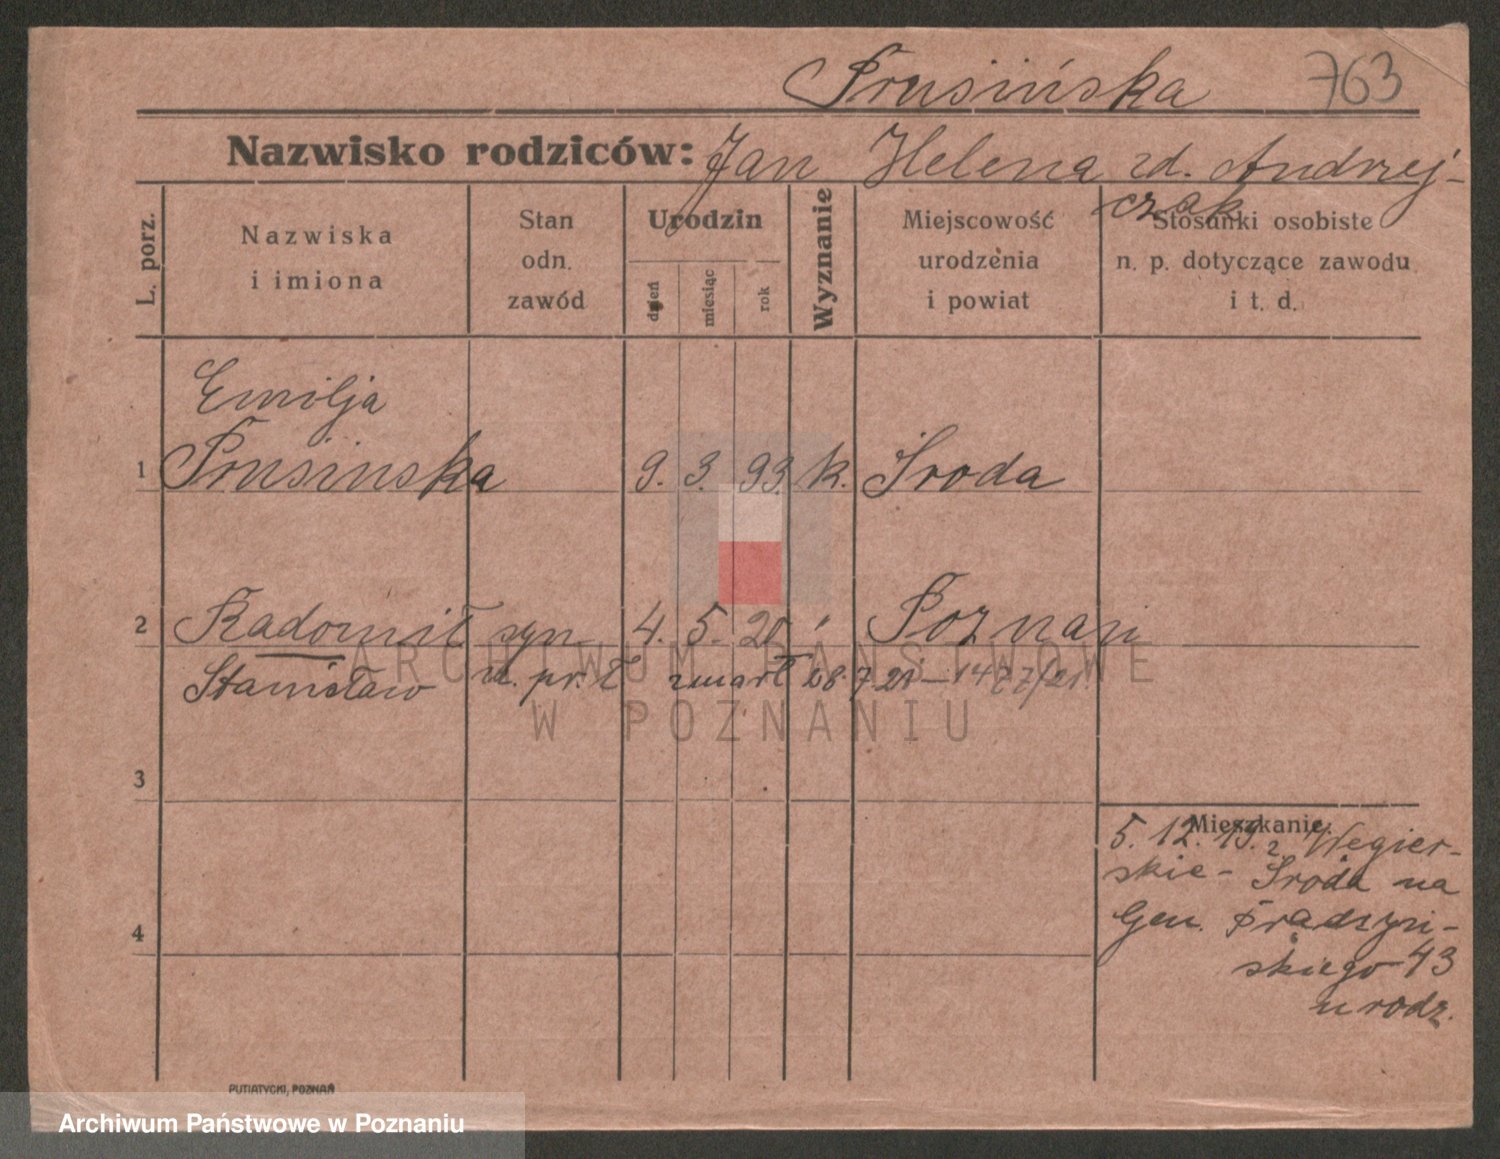 Prusińska 763
Nazwisko rodziców: Jan Helena zd. Andrzej-
czak
L. porz.
Nazwiska
i imiona
Stan
odn.
zawód
Urodzin
dzień
miesiąc
rok
Wyznanie
Miejscowość
urodzenia
i powiat
Stosunki osobiste
n. p. dotyczące zawodu
i t. d.
Emilja
1 Prusinska 9. 3. 93. k. Sroda
2 Radomił syn 4. 5. 20 " Poznań
Stanisław n. pr. ł zmarł 28. 7 21 – 1477/21
ARCHIWUM PAŃSTWOWE
W POZNANIU
3
4
Mieszkanie:
5. 12. 19. z Wegier-
skie - Sroda na
Gen. Prądzyń-
skiego 43
u rodz.
PUTIATYCKI, POZNAŃ
Archiwum Państwowe w Poznaniu